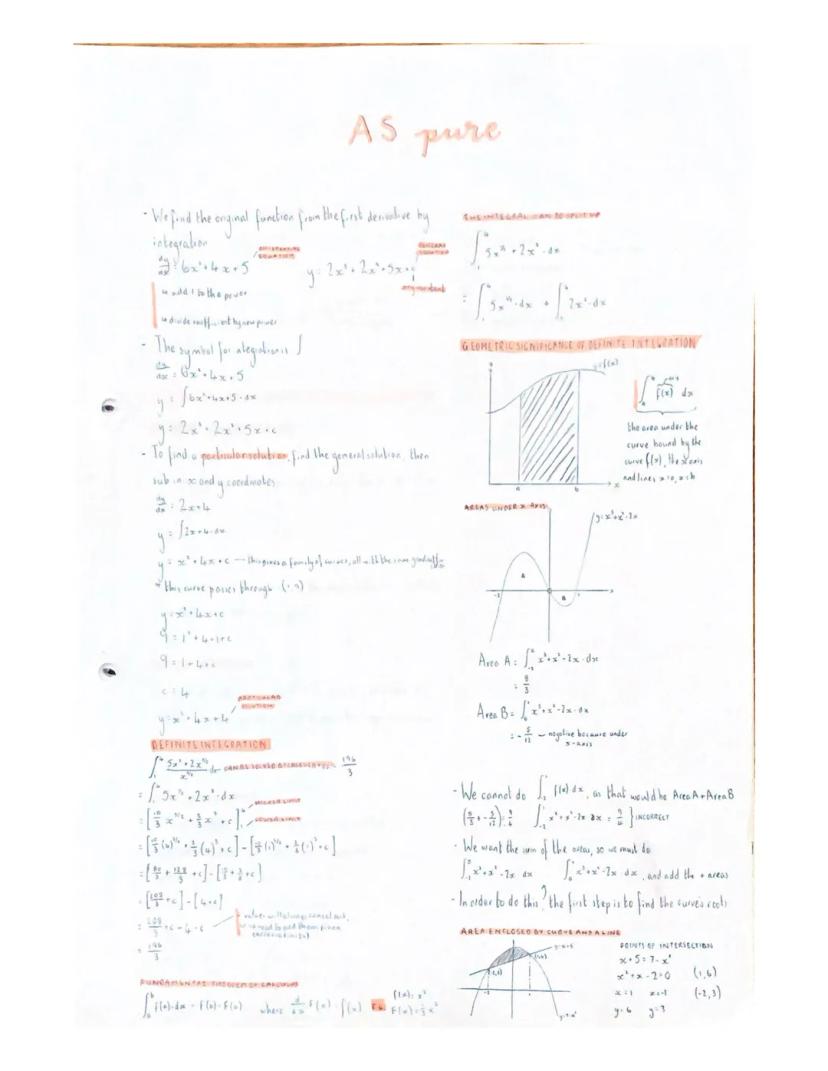 AS pure
- We find the original function from the first derivative by
integration
dy/dx = 6x² + 4x + 5
DIFFERENTIAL EQUATION
y = 2x³ + 2x² + 5x + c
GENERAL SOLUTION
↳ add 1 to the power
↳ divide coefficient by new power
- The symbol for integration is ∫
dy/dx = 6x² + 4x + 5
y = ∫6x² + 4x + 5 · dx
y = 2x³ + 2x² + 5x + c
- To find a particular solution, find the general solution, then
sub in x and y coordinates
dy/dx = 2x + 4
y = ∫2x + 4 · dx
y = x² + 4x + c — this gives a family of curves, all with the same gradient
* this curve passes through (1, 9)
y = x² + 4x + c
9 = 1² + 4·1 + c
9 = 1 + 4 + c
c = 4
y = x² + 4x + 4
PARTICULAR SOLUTION
DEFINITE INTEGRATION
196/3
= ∫₁⁴ 5x^(3/2) + 2x² · dx
UPPER LIMIT
LOWER LIMIT
= [208/3 + c] - [4 + c]
= 208/3 + c - 4 - c
= 196/3
FUNDAMENTAL THEOREM OF CALCULUS
where d/dx F(x) = f(x)
f(x) = x²
F(x) = 1/3 x³
THE INTEGRAL CAN BE SPLIT UP
∫₁⁴ 5x^(3/2) + 2x² · dx
= ∫₁⁴ 5x^(3/2) · dx + ∫₁⁴ 2x² · dx
GEOMETRIC SIGNIFICANCE OF DEFINITE INTEGRATION
y = f(x)
a b x
f(x) dx
the area under the
curve bound by the
curve f(x), the x axis
and lines x = a, x = b
AREAS UNDER X AXIS
y = x³ + x² - 2x
A
B
-2 1
Area A = ∫₋₂⁰ x³ + x² - 2x · dx
= 8/3
Area B = ∫₀¹ x³ + x² - 2x · dx
= -5/12 — negative because under
x-axis
- We cannot do ∫₋₂¹ f(x) dx, as that would be Area A + Area B
INCORRECT
- We want the sum of the areas, so we must do
x³ + x² - 2x dx ∫₀¹ x³ + x² - 2x · dx, and add the + areas
- In order to do this, the first step is to find the curve's roots
AREA ENCLOSED BY CURVE AND A LINE
y = x + 5
(-2, 3)
(1, 6)
-2 1
y = 7 - x²
POINTS OF INTERSECTION
x + 5 = 7 - x²
x² + x - 2 = 0 (1, 6)
x = 1 x = -2 (-2, 3)
y = 6 y = 3